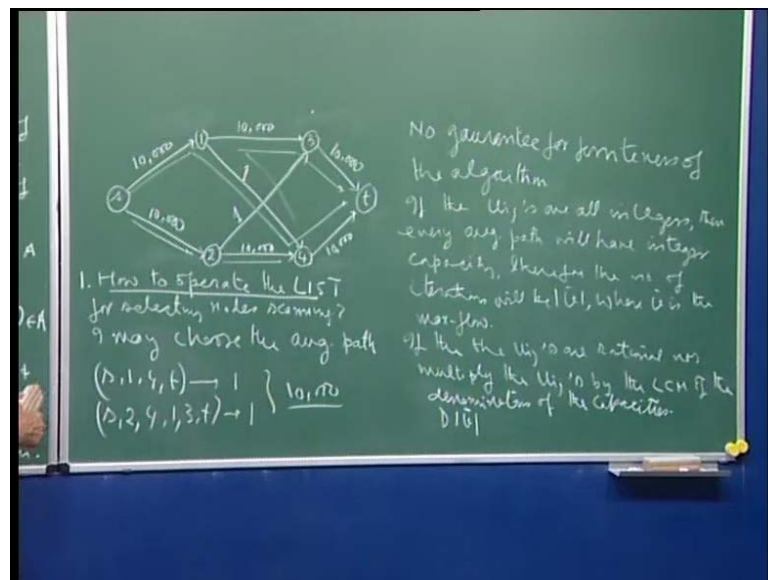 10,000
10,000
10,000
10,000
10,000
10,000
1
1
s
1
2
3
4
t
A
)∈A
t
1. How to operate the LIST
for selecting nodes scanning?
I may choose the aug. path
(s,1,4,t) → 1
(s,2,4,1,3,t) → 1
} 10,000
No gaurantee for finiteness of
the algorithm
If the Uij's are all integers, then
every aug path will have integer
capacity, therefore the no. of
iterations will be |v̄|, where v̄ is the
max-flow.
If the the Uij's are rational nos
multiply the Uij's by the LCM of the
denominators of the capacities.
D|v̄|